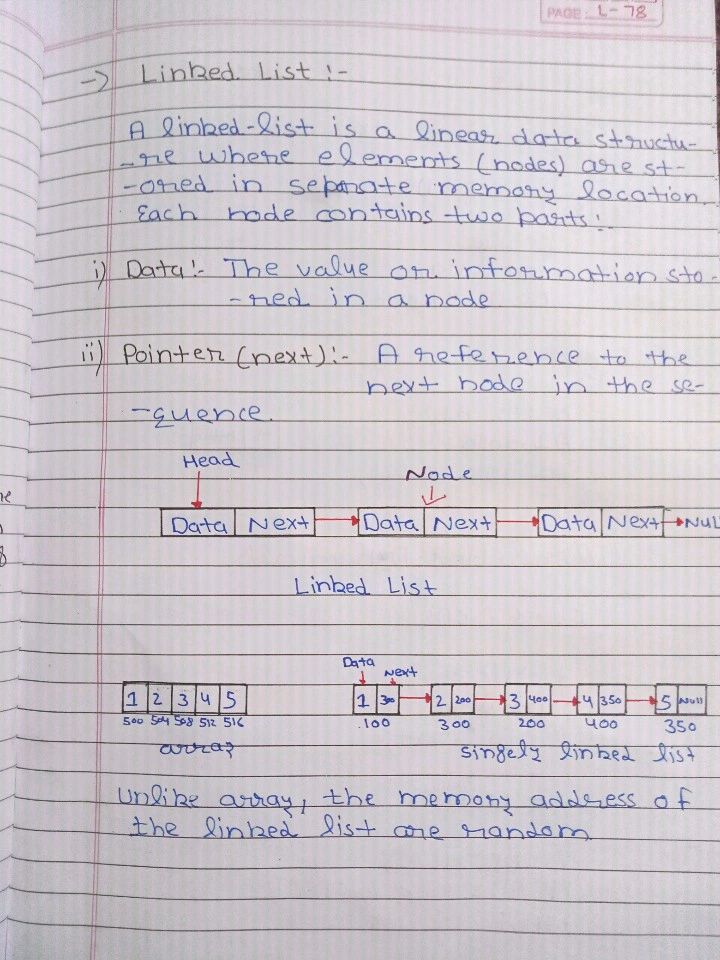 PAGE: L-78
-> Linked List :-
A linked-list is a linear data structu-
-re where elements (nodes) are st-
-ored in separate memory location.
Each node contains two parts:
i) Data:- The value or information sto-
-red in a node
ii) Pointer (next):- A reference to the
next node in the se-
-quence.
Head Node
Data Next Data Next Data Next Null
Linked List
Data Next
1 2 3 4 5 1 300 2 200 3 400 4 350 5 Null
500 504 508 512 516 100 300 200 400 350
array singely linked list
Unlike array, the memory address of
the linked list are random